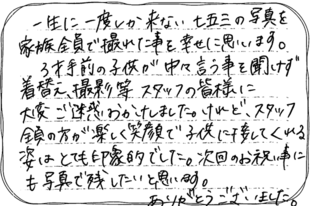 一生に一度しか来ない七五三の写真を
家族全員で撮れた事を幸せに思います。
3才手前の子供が中々言う事を聞けず
着替え、撮影等 スタッフの皆様に
大変ご迷惑おかけしました。けれど、スタッフ
全員の方が楽しく笑顔で子供に接してくれる
姿はとても印象的でした。次回のお祝い事に
も写真で残したいと思います。
ありがとうございました。